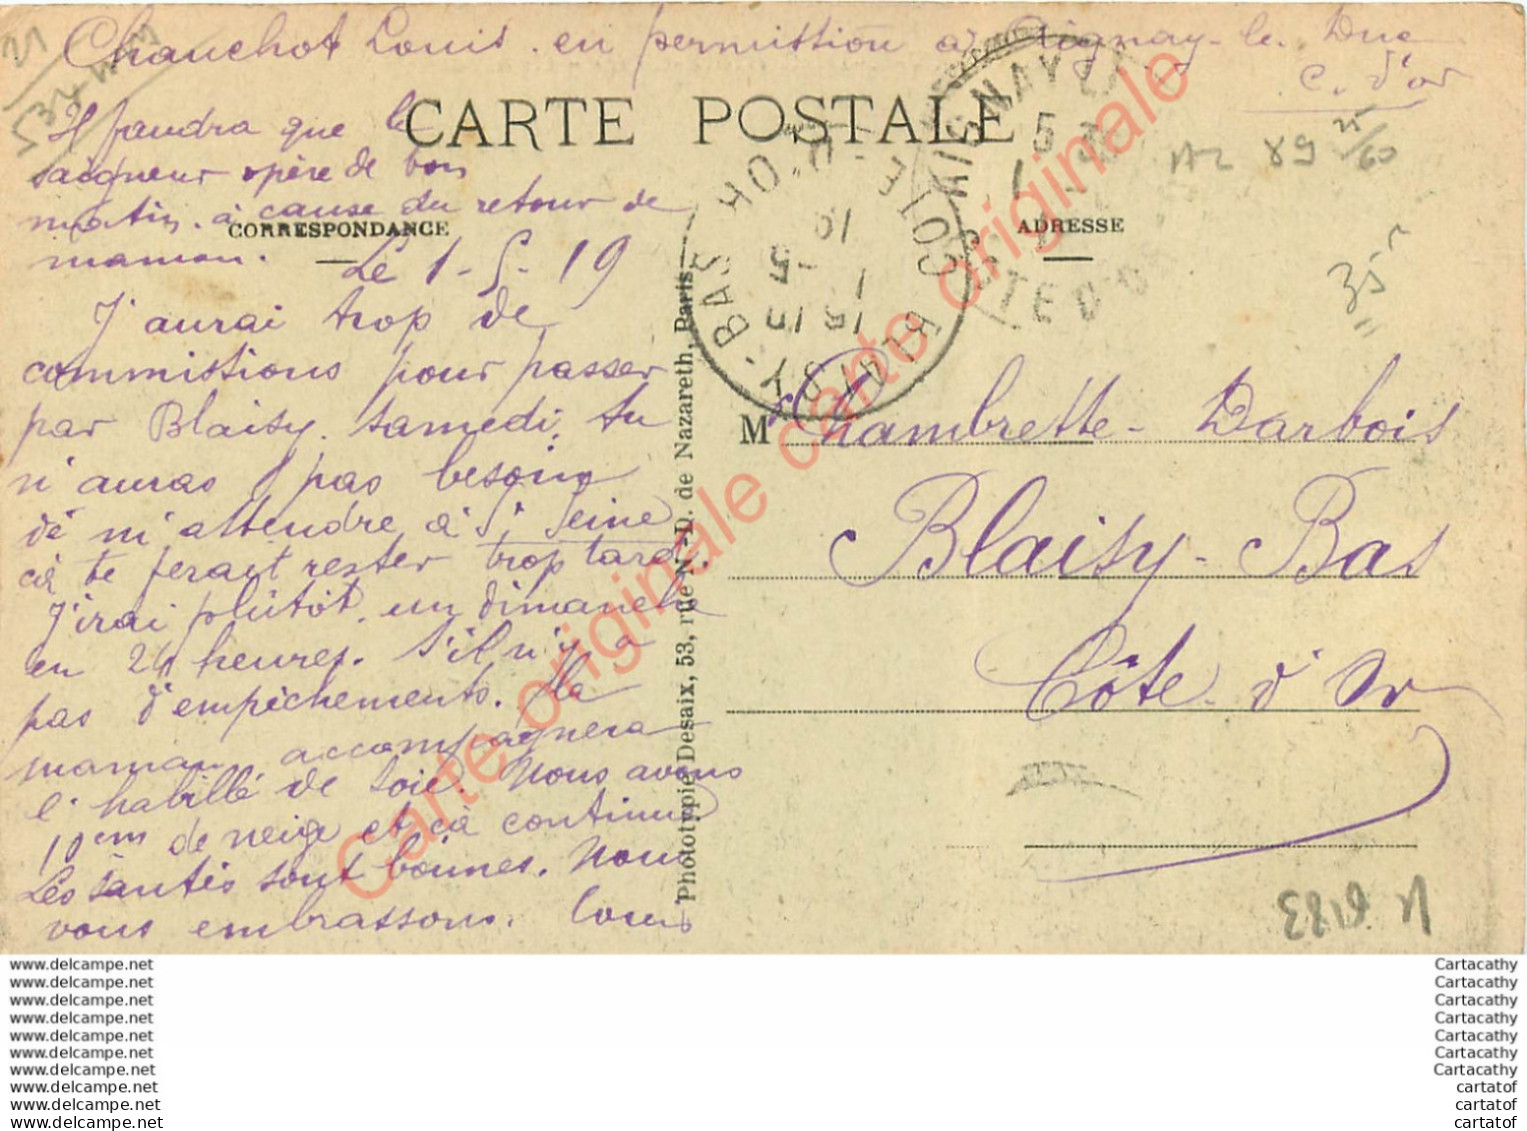 Chauchot Louis. en permission à Aignay-le-Duc
C. d'or
CARTE POSTALE
Il faudra que le
saigneur opère de bon
matin. à cause du retour de
maman.
CORRESPONDANCE
ADRESSE
Le 1-5-19
J'aurai trop de
commissions pour passer
par Blaisy. samedi, tu
n'auras pas besoin
de m'attendre à St Seine
ça te ferait rester trop tard.
J'irai plutôt un dimanche
en 24 heures. S'il n'y a
pas d'empêchements. Ma
maman accompagnera
l'habillé de soie. Nous avons
10cm de neige et çà continue
Les santés sont bonnes. Nous
vous embrassons. Louis
Phototypie Desaix, 53, rue N.-D. de Nazareth, Paris
BLAISY-BAS
CÔTE-D'OR
1 -5
19
AIGNAY-LE-DUC
CÔTE D'OR
M Chambrette-Darbois
Blaisy-Bas
Côte d'Or
35
Carte originale
Carte originale
www.delcampe.net
www.delcampe.net
www.delcampe.net
www.delcampe.net
www.delcampe.net
www.delcampe.net
www.delcampe.net
www.delcampe.net
www.delcampe.net
www.delcampe.net
Cartacathy
Cartacathy
Cartacathy
Cartacathy
Cartacathy
Cartacathy
Cartacathy
cartatof
cartatof
cartatof